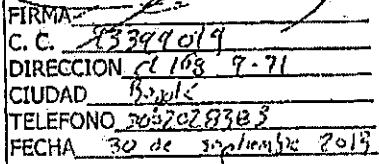 FIRMA
C. C. 93399019
DIRECCION cl 168 9-71
CIUDAD Bogotá
TELEFONO
FECHA 30 de septiembre 2013